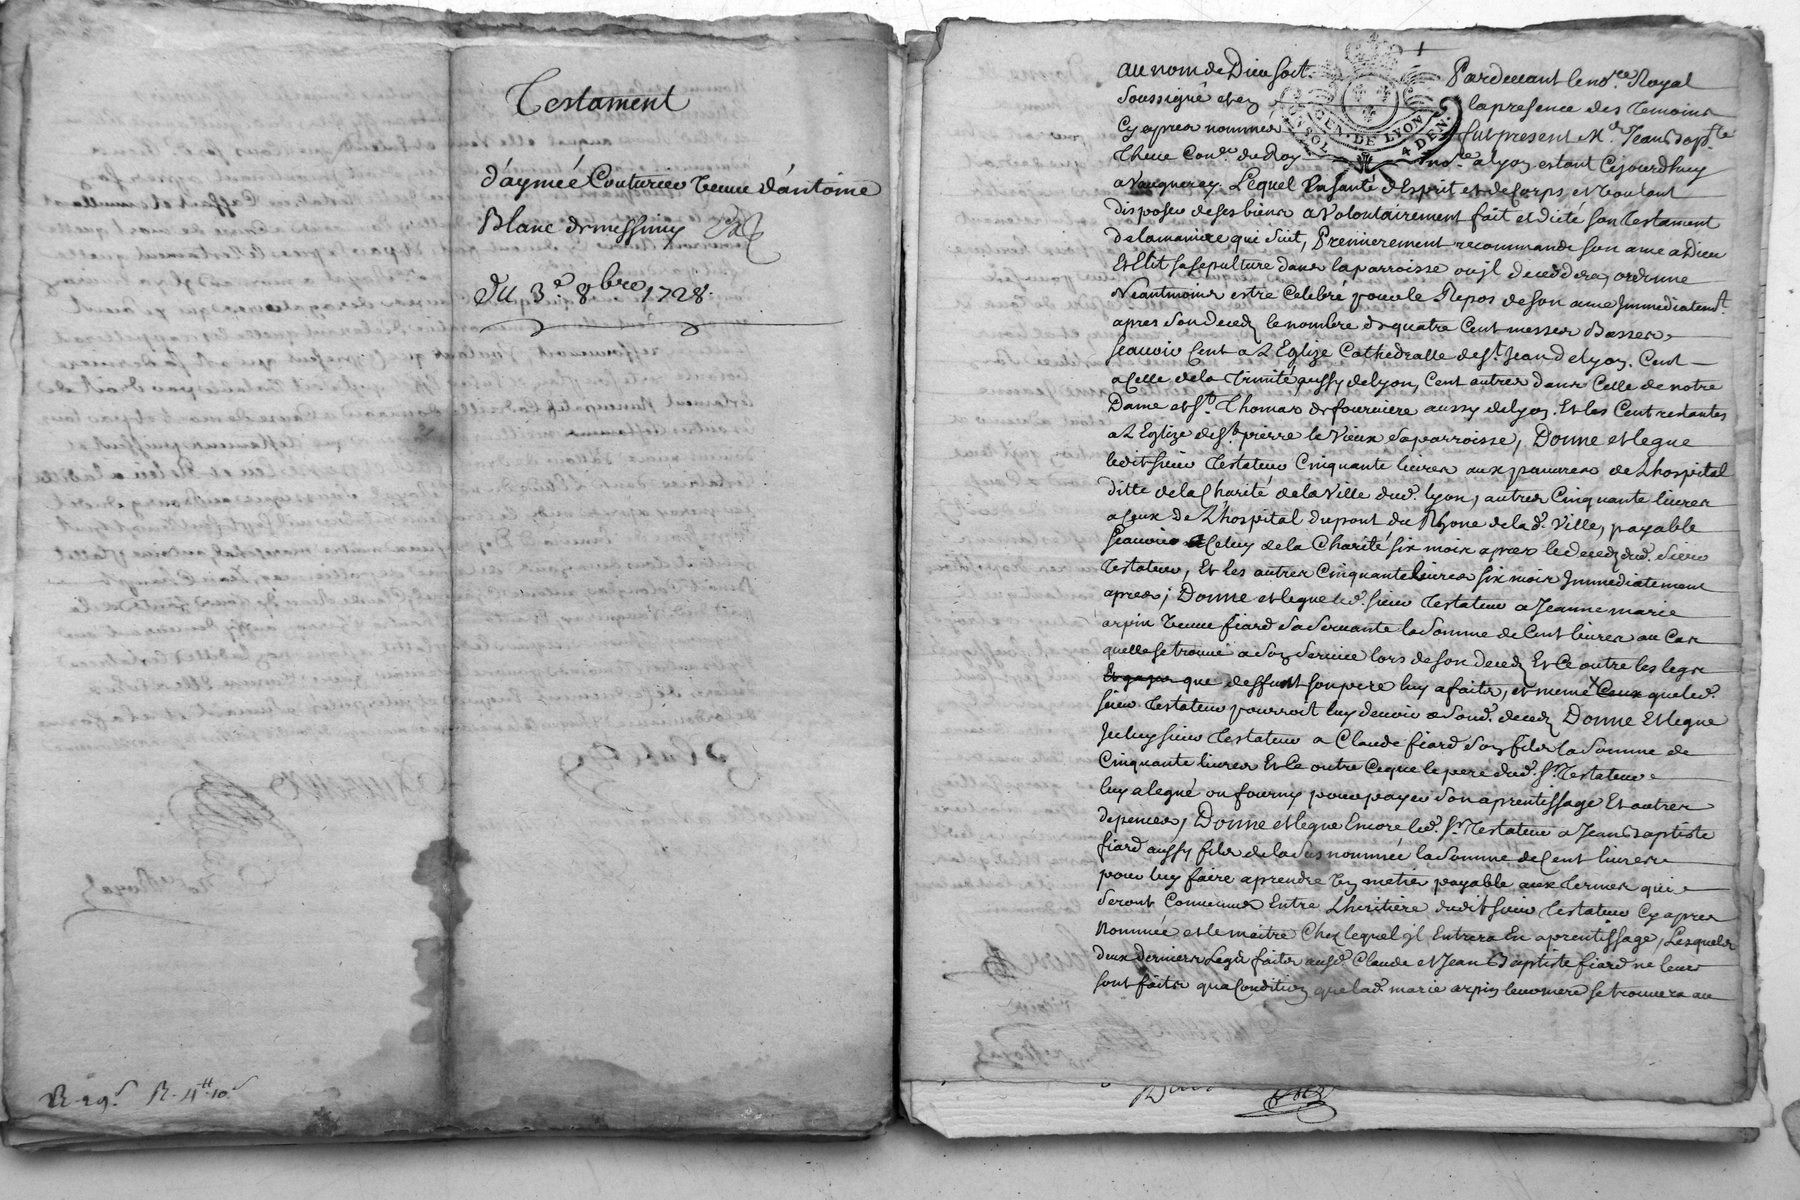 Testament
d'aymeé Couturier veuve d'antoine
Blanc de messimy
Du 3.e 8bre 1728.
R. 29.s R. 4tt 10s
au nom de Dieu soit. Pardevant le no.re Royal
soussigné et en la presence des temoins
Cy apres nommés fut present M.e Jean Bap.te
Cons.er du Roy no.re a lyon estant Cejourdhuy
a Vaugneray. Lequel En santé d'Esprit et de Corps, et voulant
disposer de ses biens a volontairement fait et dicté son Testament
de la maniere qui suit, Premierement recommande son ame a Dieu
Et Elit sa sepulture dans la parroisse ou jl deceddera, ordonne
Neantmoins estre Celebré pour le Repos de son ame Immediatem.t
apres son decedz le nombre de quatre Cent messes Basses,
scauoir Cent a L'Eglize Cathedralle de S.t Jean de lyon. Cent
a Celle de la Trinité aussy de lyon, Cent autres dans Celle de notre
Dame et S.t Thomas de fourviere aussy de lyon. Et les Cent restantes
a L'Eglize de S.t pierre le Vieux sa parroisse, Donne et legue
ledit sieur Testateur Cinquante livres aux pauvres de L'hospital
ditte de la Charité de la Ville dud. lyon, autres Cinquante livres
a Ceux de L'hospital du pont du Rhone de lad. Ville, payable
scauoir a Celuy de la Charité six mois apres le decedz dud. sieur
Testateur, Et les autres Cinquante livres six mois Immediatement
apres; Donne et legue led. sieur Testateur a Jeanne marie
arpin veuve fiard sa servante la somme de Cent livres au Cas
quelle se trouve a son service lors de son decedz Et Ce outre les legs
Et gages que deffunt son pere luy a faits, et meme Ceux que led.
sieur Testateur pourroit luy devoir a sond. decedz Donne Et legue
Jceluy sieur Testateur a Claude fiard son fils la somme de
Cinquante livres Et Ce outre Ce que le pere dud. S.r Testateur
luy a legué ou fourny pour payer son aprentissage Et autres
depences, Donne et legue Encore led. S.r Testateur a Jean Baptiste
fiard aussy fils de la sus nommée la somme de Cent livres
pour luy faire aprendre un metier payable aux termes qui
seront Convenus Entre L'heritiere dudit sieur Testateur Cy apres
Nommée et le maitre Chez lequel jl Entrera En aprentissage, Lesquels
deux derniers Legs faits ausd. Claude et Jean Baptiste fiard ne leur
sont faits qu'a Condition que lad. marie arpin leur mere se trouvera au